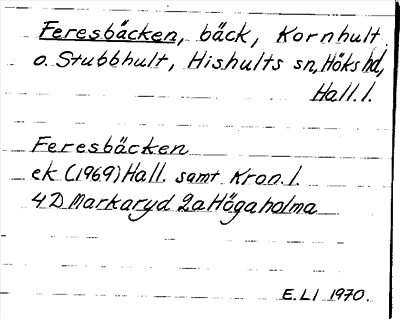 Feresbäcken, bäck, Kornhult
o. Stubbhult, Hishults sn, Höks hd,
Hall. l.
Feresbäcken
ek (1969) Hall. samt Kron. l.
4D Markaryd 2a Högaholma
E.LI 1970.